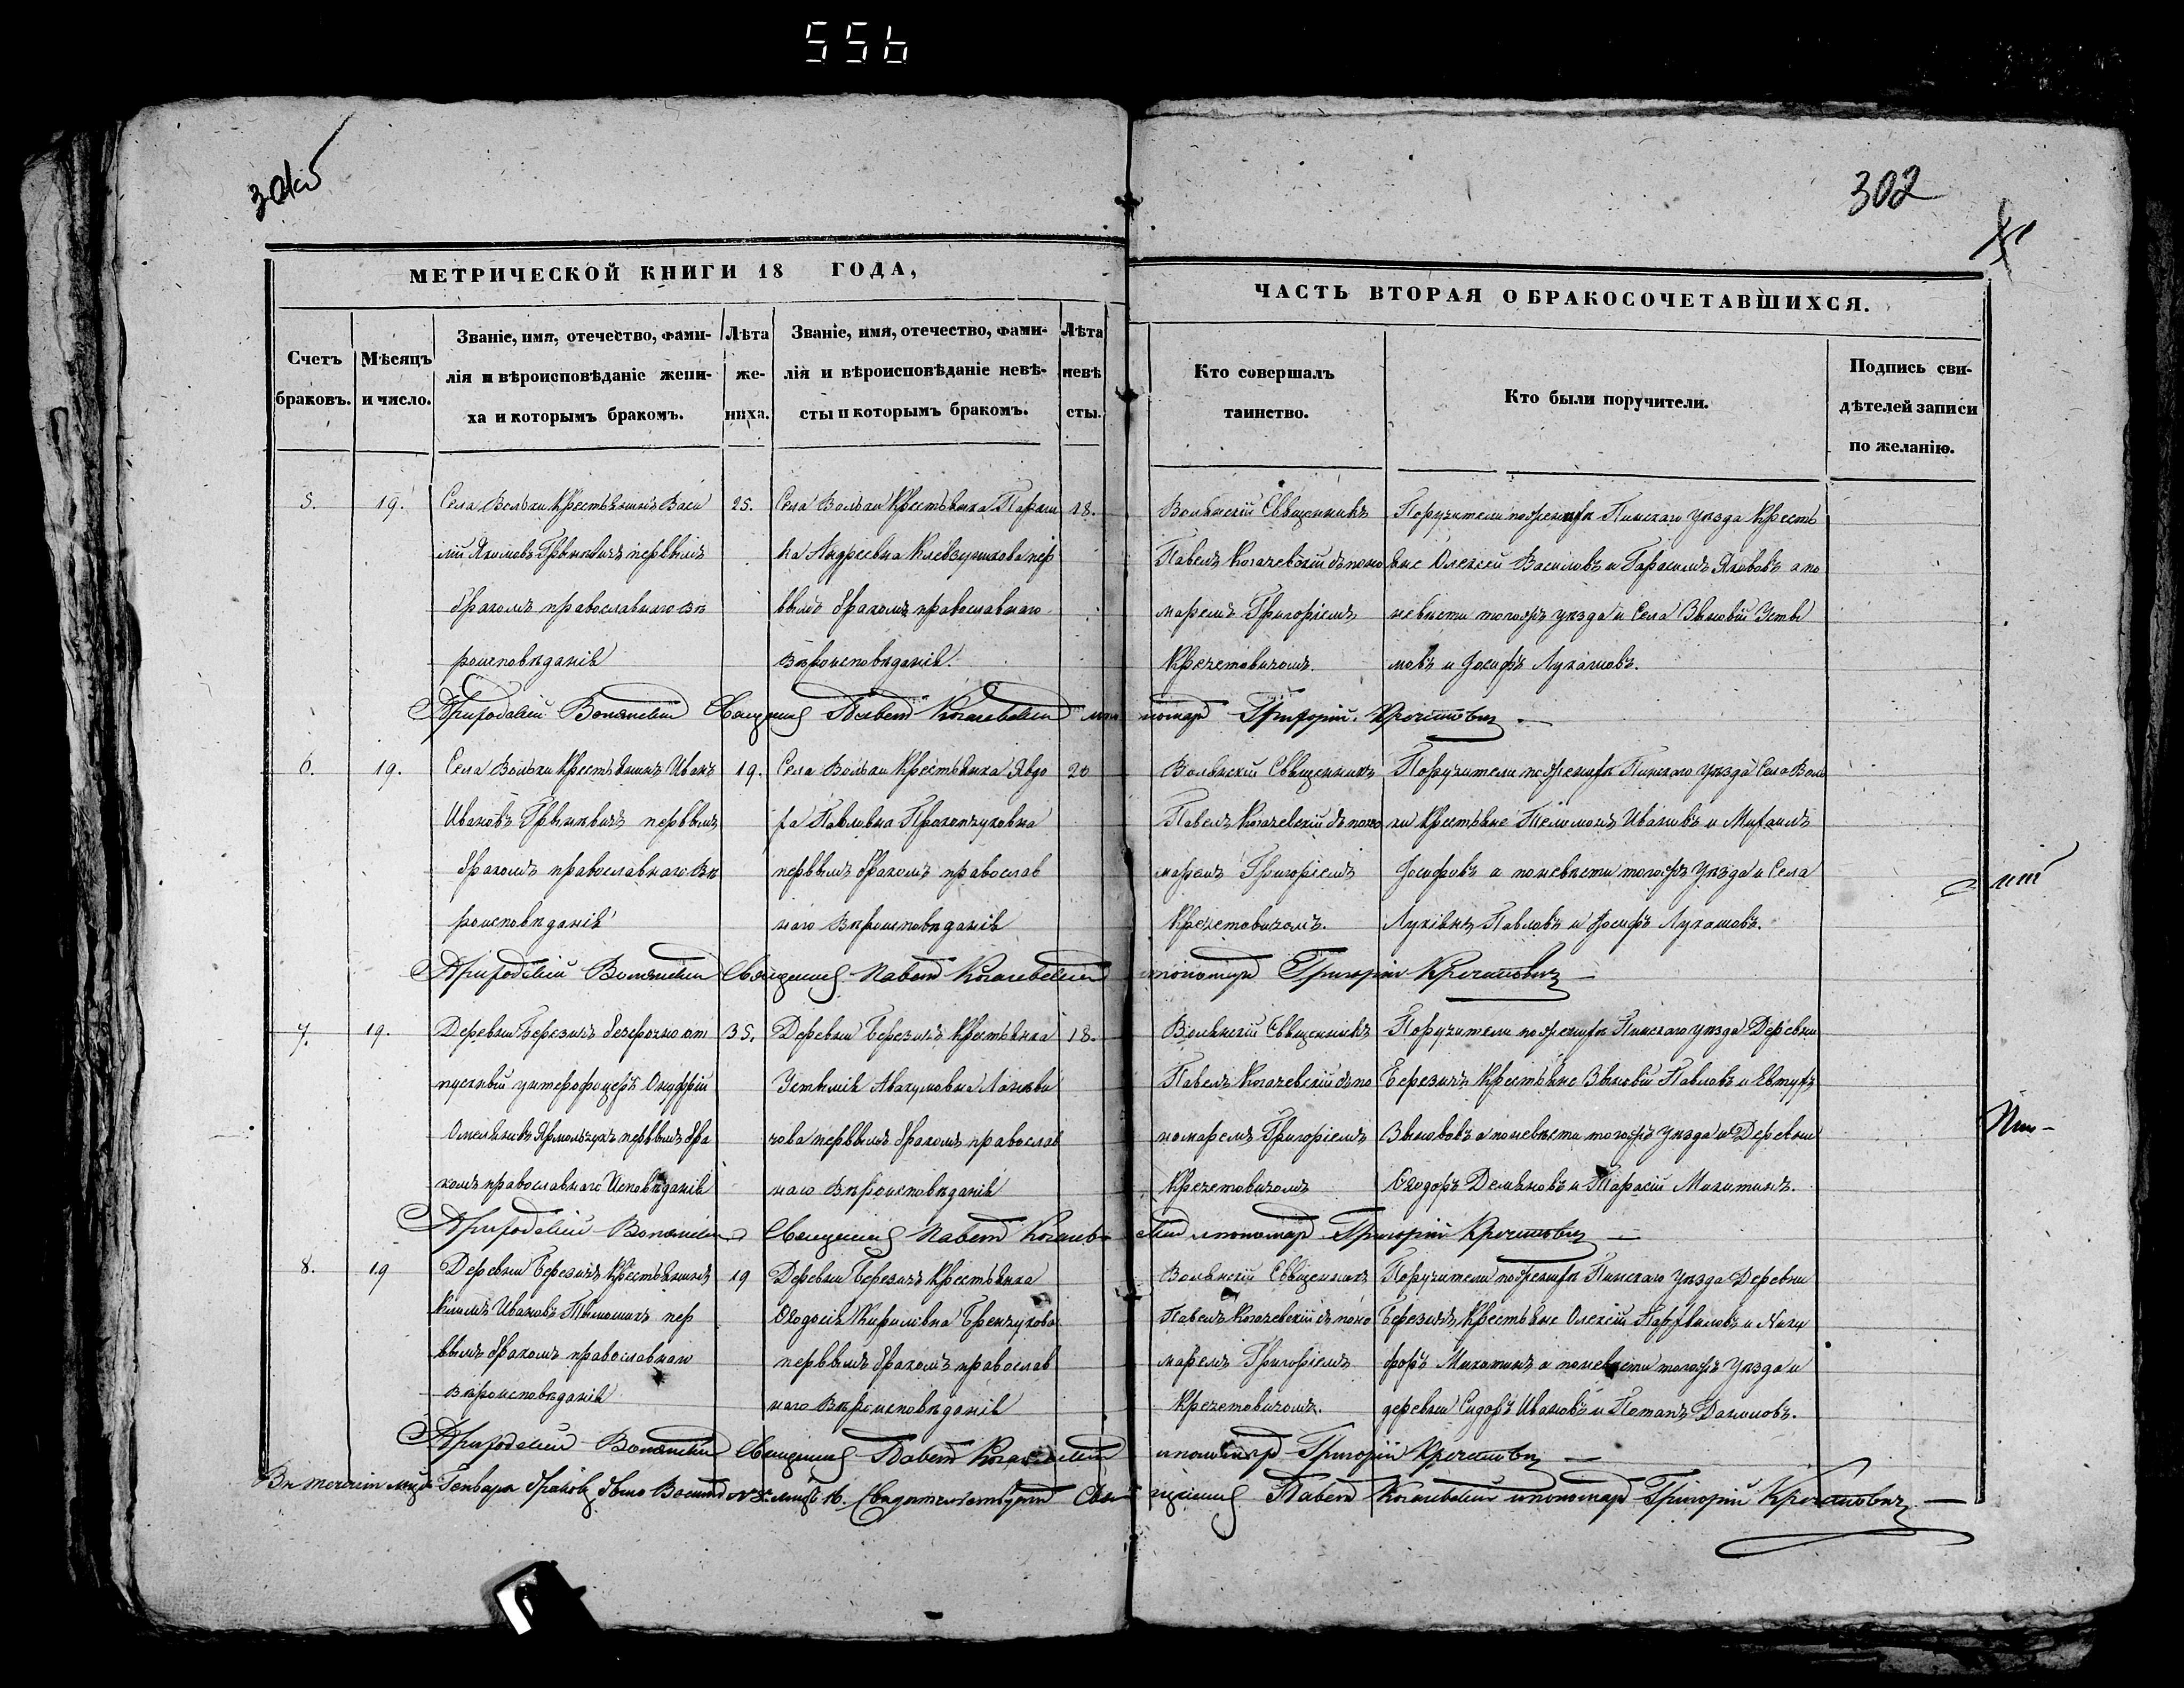 556
302
МЕТРИЧЕСКОЙ КНИГИ 18 ГОДА,
ЧАСТЬ ВТОРАЯ О БРАКОСОЧЕТАВШИХСЯ.
Счетъ браковъ.
Мѣсяцъ и число.
Званіе, имя, отечество, фами-
лія и вѣроисповѣданіе жени-
ха и которымъ бракомъ.
Лѣта
же-
ниха.
Званіе, имя, отечество, фами-
лія и вѣроисповѣданіе невѣ-
сты и которымъ бракомъ.
Лѣта
невѣ
сты.
Кто совершалъ
таинство.
Кто были поручители.
Подпись сви-
дѣтелей записи
по желанію.
5.
19.
Села Вольки Крестьянинъ Васи
лій Якимовъ первымъ
бракомъ православнаго вѣ
роисповѣданія
25.
Села Вольки Крестьянка Параси
ка Андреевна пер
вымъ бракомъ православнаго
вѣроисповѣданія.
18.
Волянскій Священникъ
Павелъ Когачевскій съ поно
маремъ Григоріемъ
Кречетовичомъ.
Поручители по женихѣ Пинскаго уѣзда Кресть
яне Олексей Василовъ и Гарасимъ Якововъ а по
невѣсти тогожъ уѣзда и Села Зѣновій Усты
мовъ и Іосифъ Лукашовъ.
Приходскій Волянскій Священникъ Павелъ Когачевскій пономарь Григорій Кречетовичъ
6.
19.
Села Вольки Крестьянинъ Иванъ
Ивановъ первымъ
бракомъ православнаго вѣ
роисповѣданія
19.
Села Вольки Крестьянка Явдо
ха Павловна Прокопчуковна
первымъ бракомъ православ
наго вѣроисповѣданія
20
Волянскій Священникъ
Павелъ Когачевскій съ поно
маремъ Григоріемъ
Кречетовичомъ.
Поручители по женихѣ Пинскаго уѣзда Села Воль
ки Крестьяне Иванивъ и Михаилъ
Іосифовъ а по невѣсти тогожъ уѣзда и Села
Павловъ и Іосифъ Лукашовъ.
Приходскій Волянскій Священникъ Павелъ Когачевскій пономарь Григорій Кречетовичъ
7.
19.
Деревни Березичъ безсрочно от
пускный унтерофицеръ Онуфрій
Омеляновъ Ярмольчукъ первымъ бра
комъ православнаго Исповѣданія
35.
Деревни Березичъ Крестьянка
Устымія Авакумовна
чова первымъ бракомъ православ
наго вѣроисповѣданія
18.
Волянскій Священникъ
Павелъ Когачевскій съ по
номаремъ Григоріемъ
Кречетовичомъ
Поручители по женихѣ Пинскаго уѣзда Деревни
Березичъ Крестьяне Зѣновій Павловъ и Евтухъ
Зѣнововъ а по невѣсти тогожъ уѣзда и Деревни
Ѳеодоръ Демяновъ и Тарасій Микитинъ.
Приходскій Волянскій Священникъ Павелъ Когачевскій и пономарь Григорій Кречетовичъ
8.
19
Деревни Березичъ Крестьянинъ
Климъ Ивановъ пер
вымъ бракомъ православнаго
вѣроисповѣданія
19
Деревни Березичъ Крестьянка
Ѳеодосія Кириловна
первымъ бракомъ православ
наго вѣроисповѣданія
Волянскій Священникъ
Павелъ Когачевскій съ поно
маремъ Григоріемъ
Кречетовичомъ.
Поручители по женихѣ Пинскаго уѣзда Деревни
Березичъ Крестьяне Олексій и Ники
форъ Микитинъ а по невѣсти тогожъ уѣзда и
деревни Сидоръ Ивановъ и Потапъ Даниловъ.
Приходскій Волянскій Священникъ Павелъ Когачевскій и пономарь Григорій Кречетовичъ
Въ теченіи Генваря браковъ было Восемь Свидетельствуемъ Священникъ Павелъ Когачевскій и пономарь Григорій Кречетовичъ